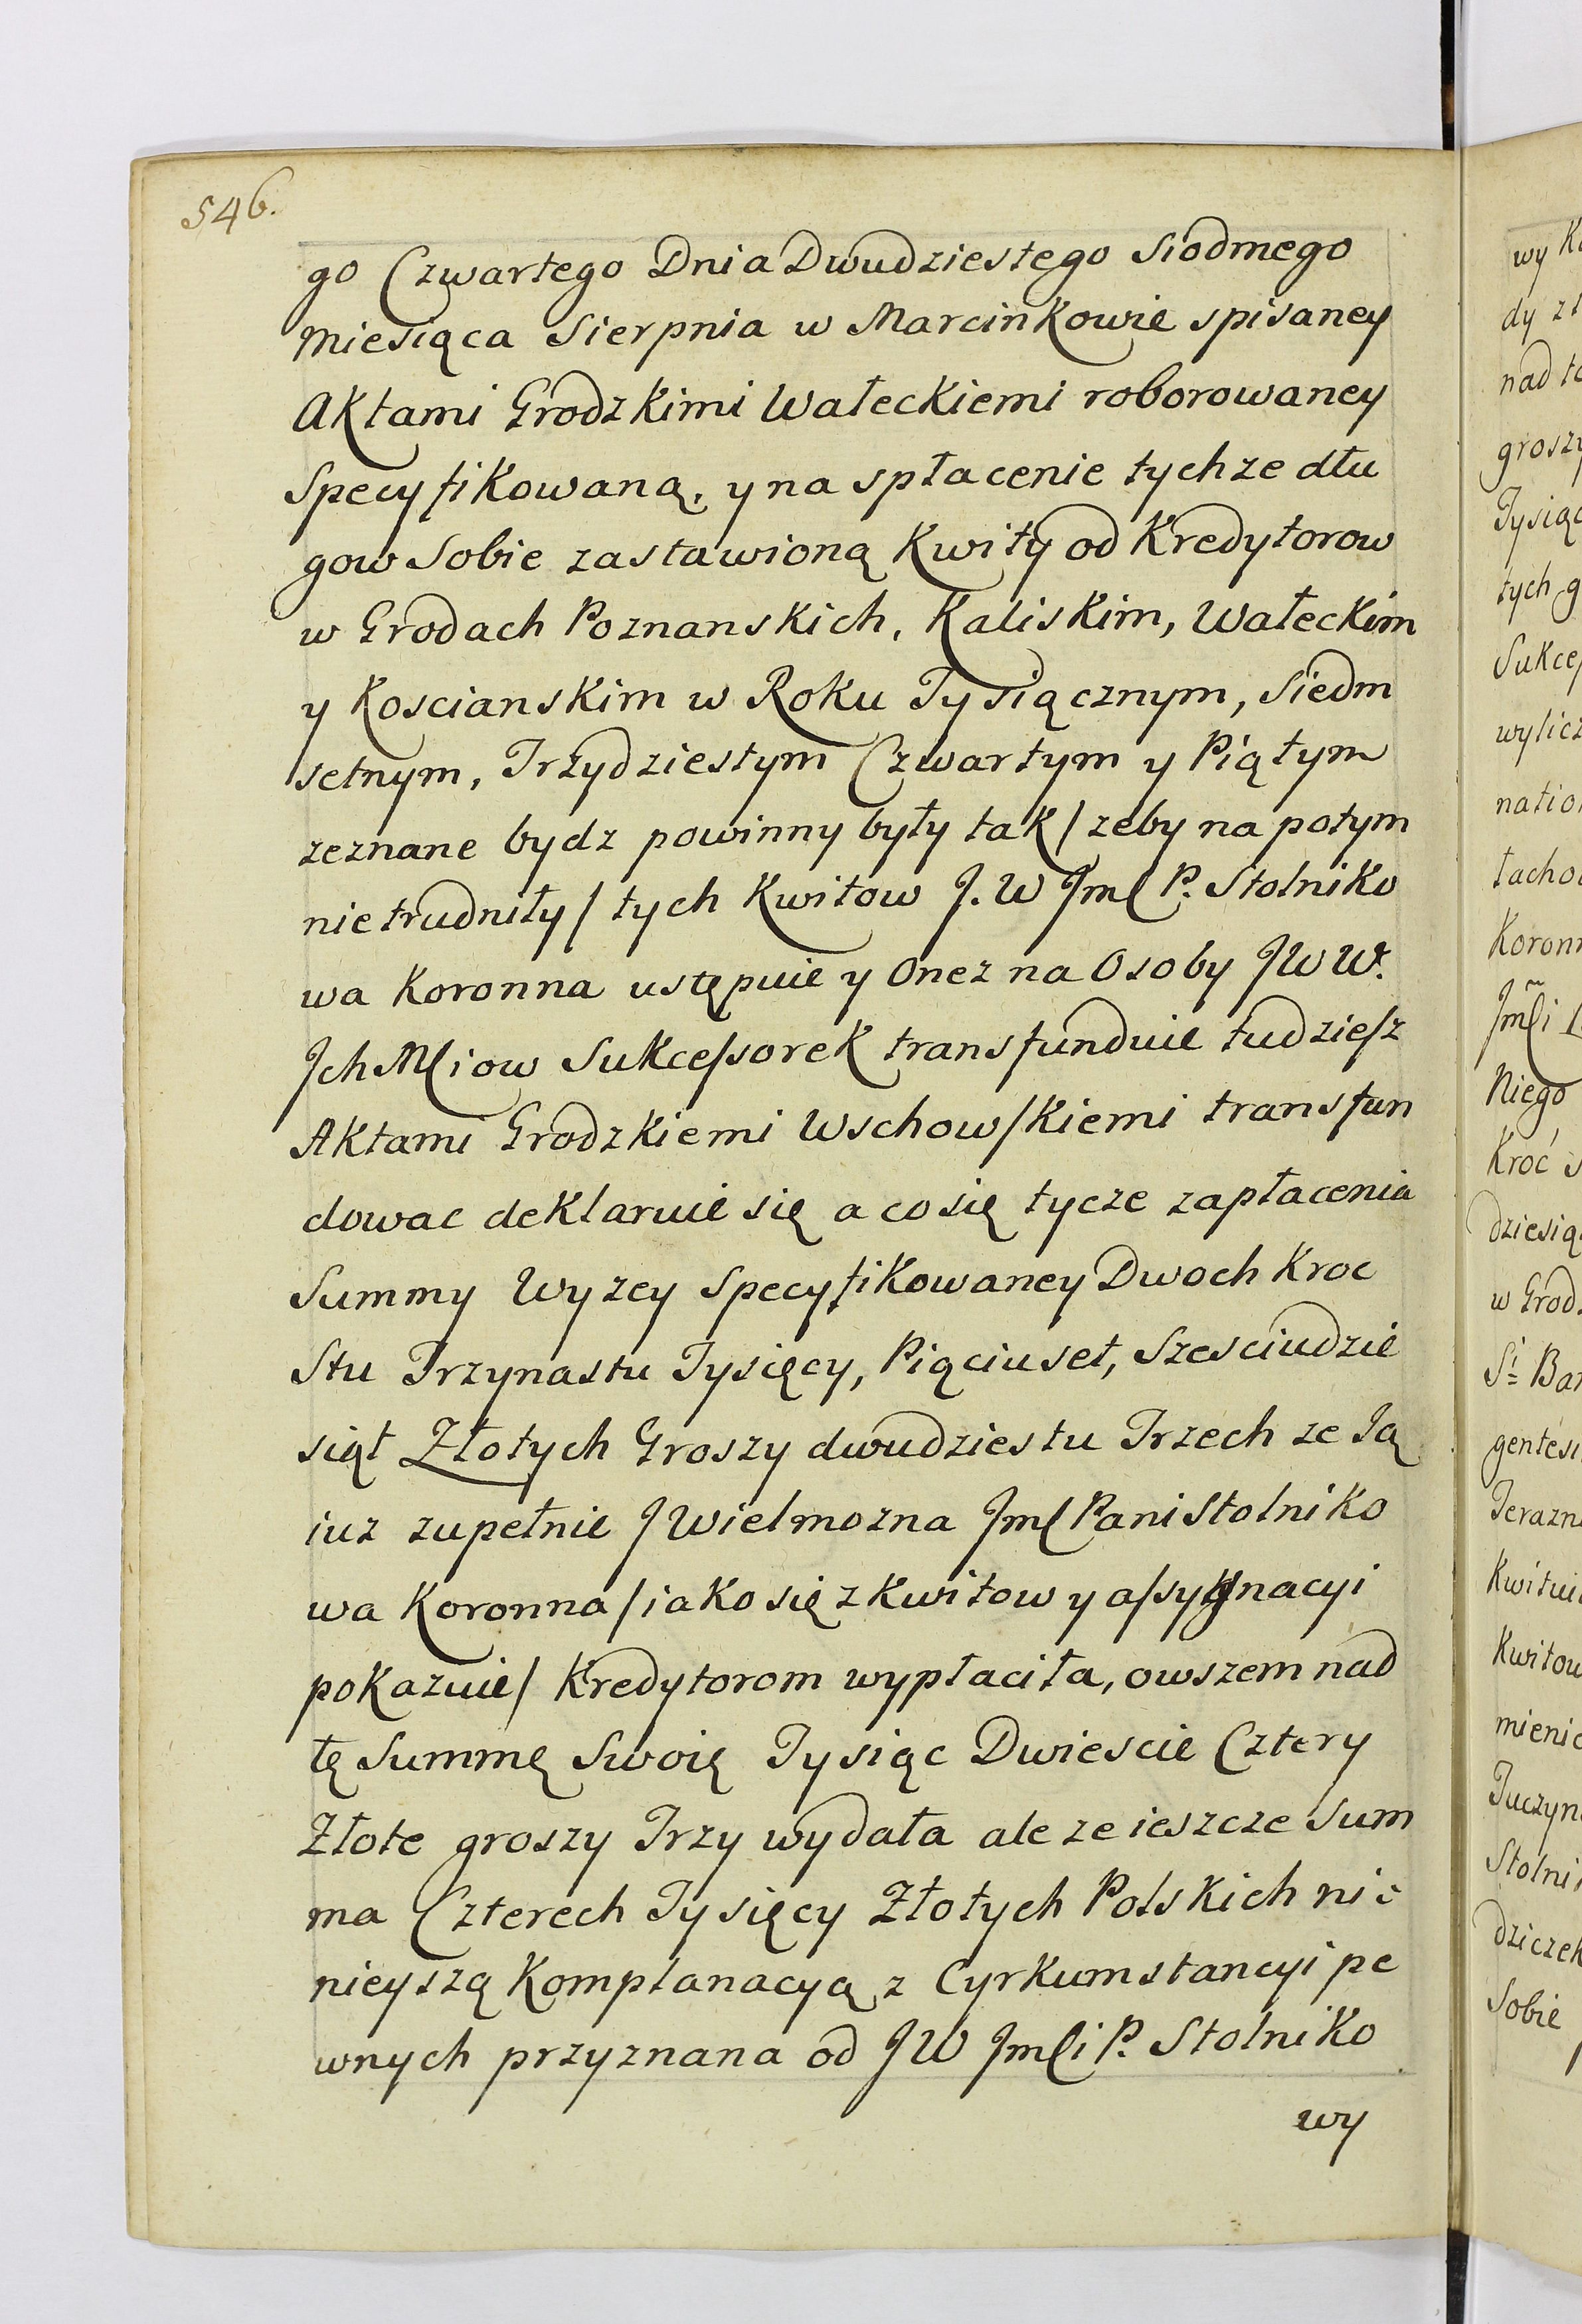 546.
go Czwartego Dnia Dwudziestego Siodmego
Miesiąca Sierpnia w Marcinkowie spisaney
Aktami Grodzkimi Wałeckiemi roborowaney
Specyfikowaną, y na spłacenie tychze dłu
gow Sobie zastawioną Kwity od Kredytorow
w Grodach Poznanskich, Kaliskim, Wałeckim
y Koscianskim w Roku Tysiącznym, Siedm
setnym, Trzydziestym Czwartym y Piątym
zeznane bydz powinny były tak / zeby na potym
nie trudniły / tych Kwitow J. W Jmſ P. Stolniko
wa Koronna ustępuie y Onez na Osoby JW W.
Jch Mſciow Sukceſsorek transfunduie tudzieſz
Aktami Grodzkiemi Wschowſkiemi transfun
dowac deklaruie się a co się tycze zapłacenia
Summy Wyzey Specyfikowaney Dwoch Kroc
Stu Trzynastu Tysięcy, Piąciuset, Szesciudzie
siąt Złotych Groszy dwudziestu Trzech ze Ją
iuz zupełnie J Wielmozna Jmſ Pani Stolniko
wa Koronna / iako się z Kwitow y aſsygnacyi
pokazuie / Kredytorom wypłaciła, owszem nad
tę Summę Swoię Tysiąc Dwiescie Cztery
Złote groszy Trzy wydała ale ze ieszcze Sum
ma Czterech Tysięcy Złotych Polskich ni
nieyszą Komplanacyą z Cyrkumstancyi pe
wnych przyznana od JW Jmſi P. Stolniko
wy
wy
dy
nad
groszy
Tysiąc
tych g
Sukceſ
wylicz
natio
tacho
Koron
Jmſi
Niego
Kroć
dziesią
w Grod
St Bar
gentesi
Terazn
Kwitui
Kwitow
mienie
Tuczyn
Stolni
dziczek
Sobie